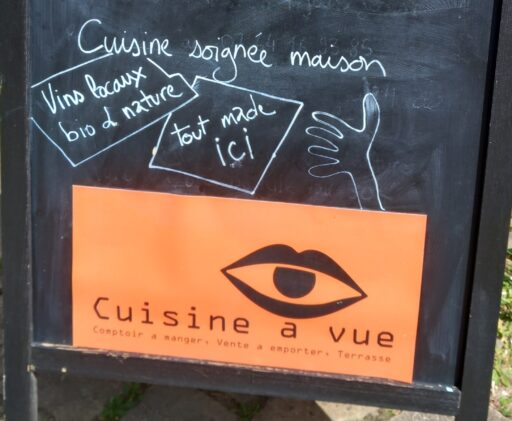 Cuisine soignée maison
Vins locaux
bio & nature
tout made
ici
Cuisine a vue
Comptoir a manger, Vente a emporter, Terrasse